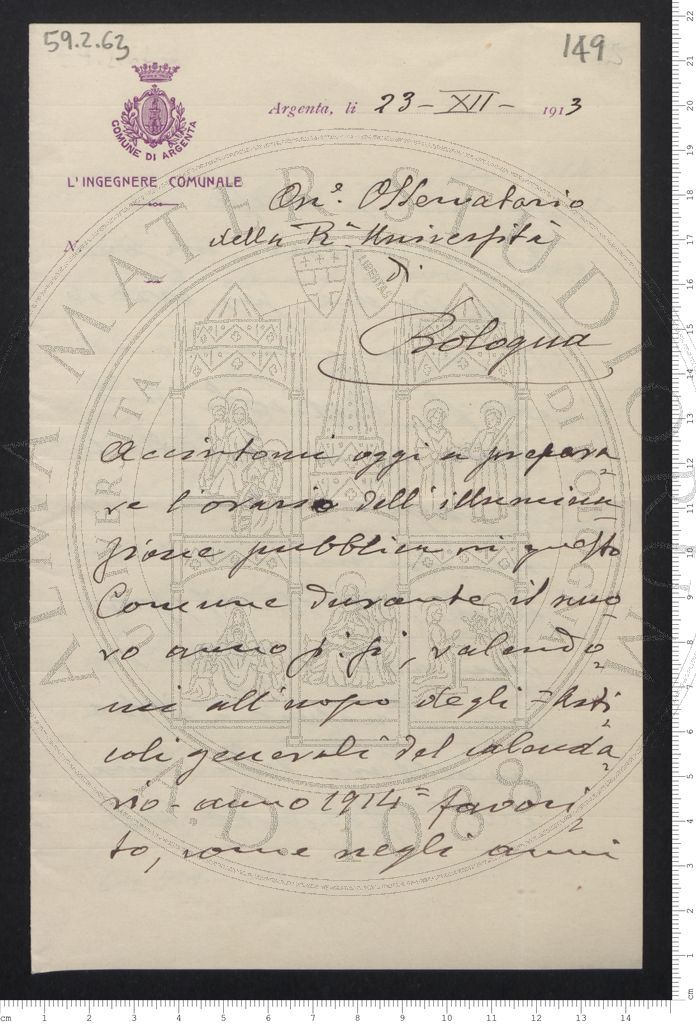 59.2.63
149
COMUNE DI ARGENTA
L'INGEGNERE COMUNALE
N.
Argenta, li 23 - XII - 1913
On.º Osservatorio
della Rª Università
di
Bologna
Accintomi oggi a prepara
re l'orario dell'illumina
zione pubblica in questo
Comune durante il nuo
vo anno p.º, valendo
mi all'uopo degli = Arti
coli generali del calenda
rio - anno 1914 = favori
to, come negli anni
ALMA MATER STUDIORUM
A.D. 1088
LIBERTAS
cm 1 2 3 4 5 6 7 8 9 10 11 12 13 14
cm 1 2 3 4 5 6 7 8 9 10 11 12 13 14 15 16 17 18 19 20 21 22